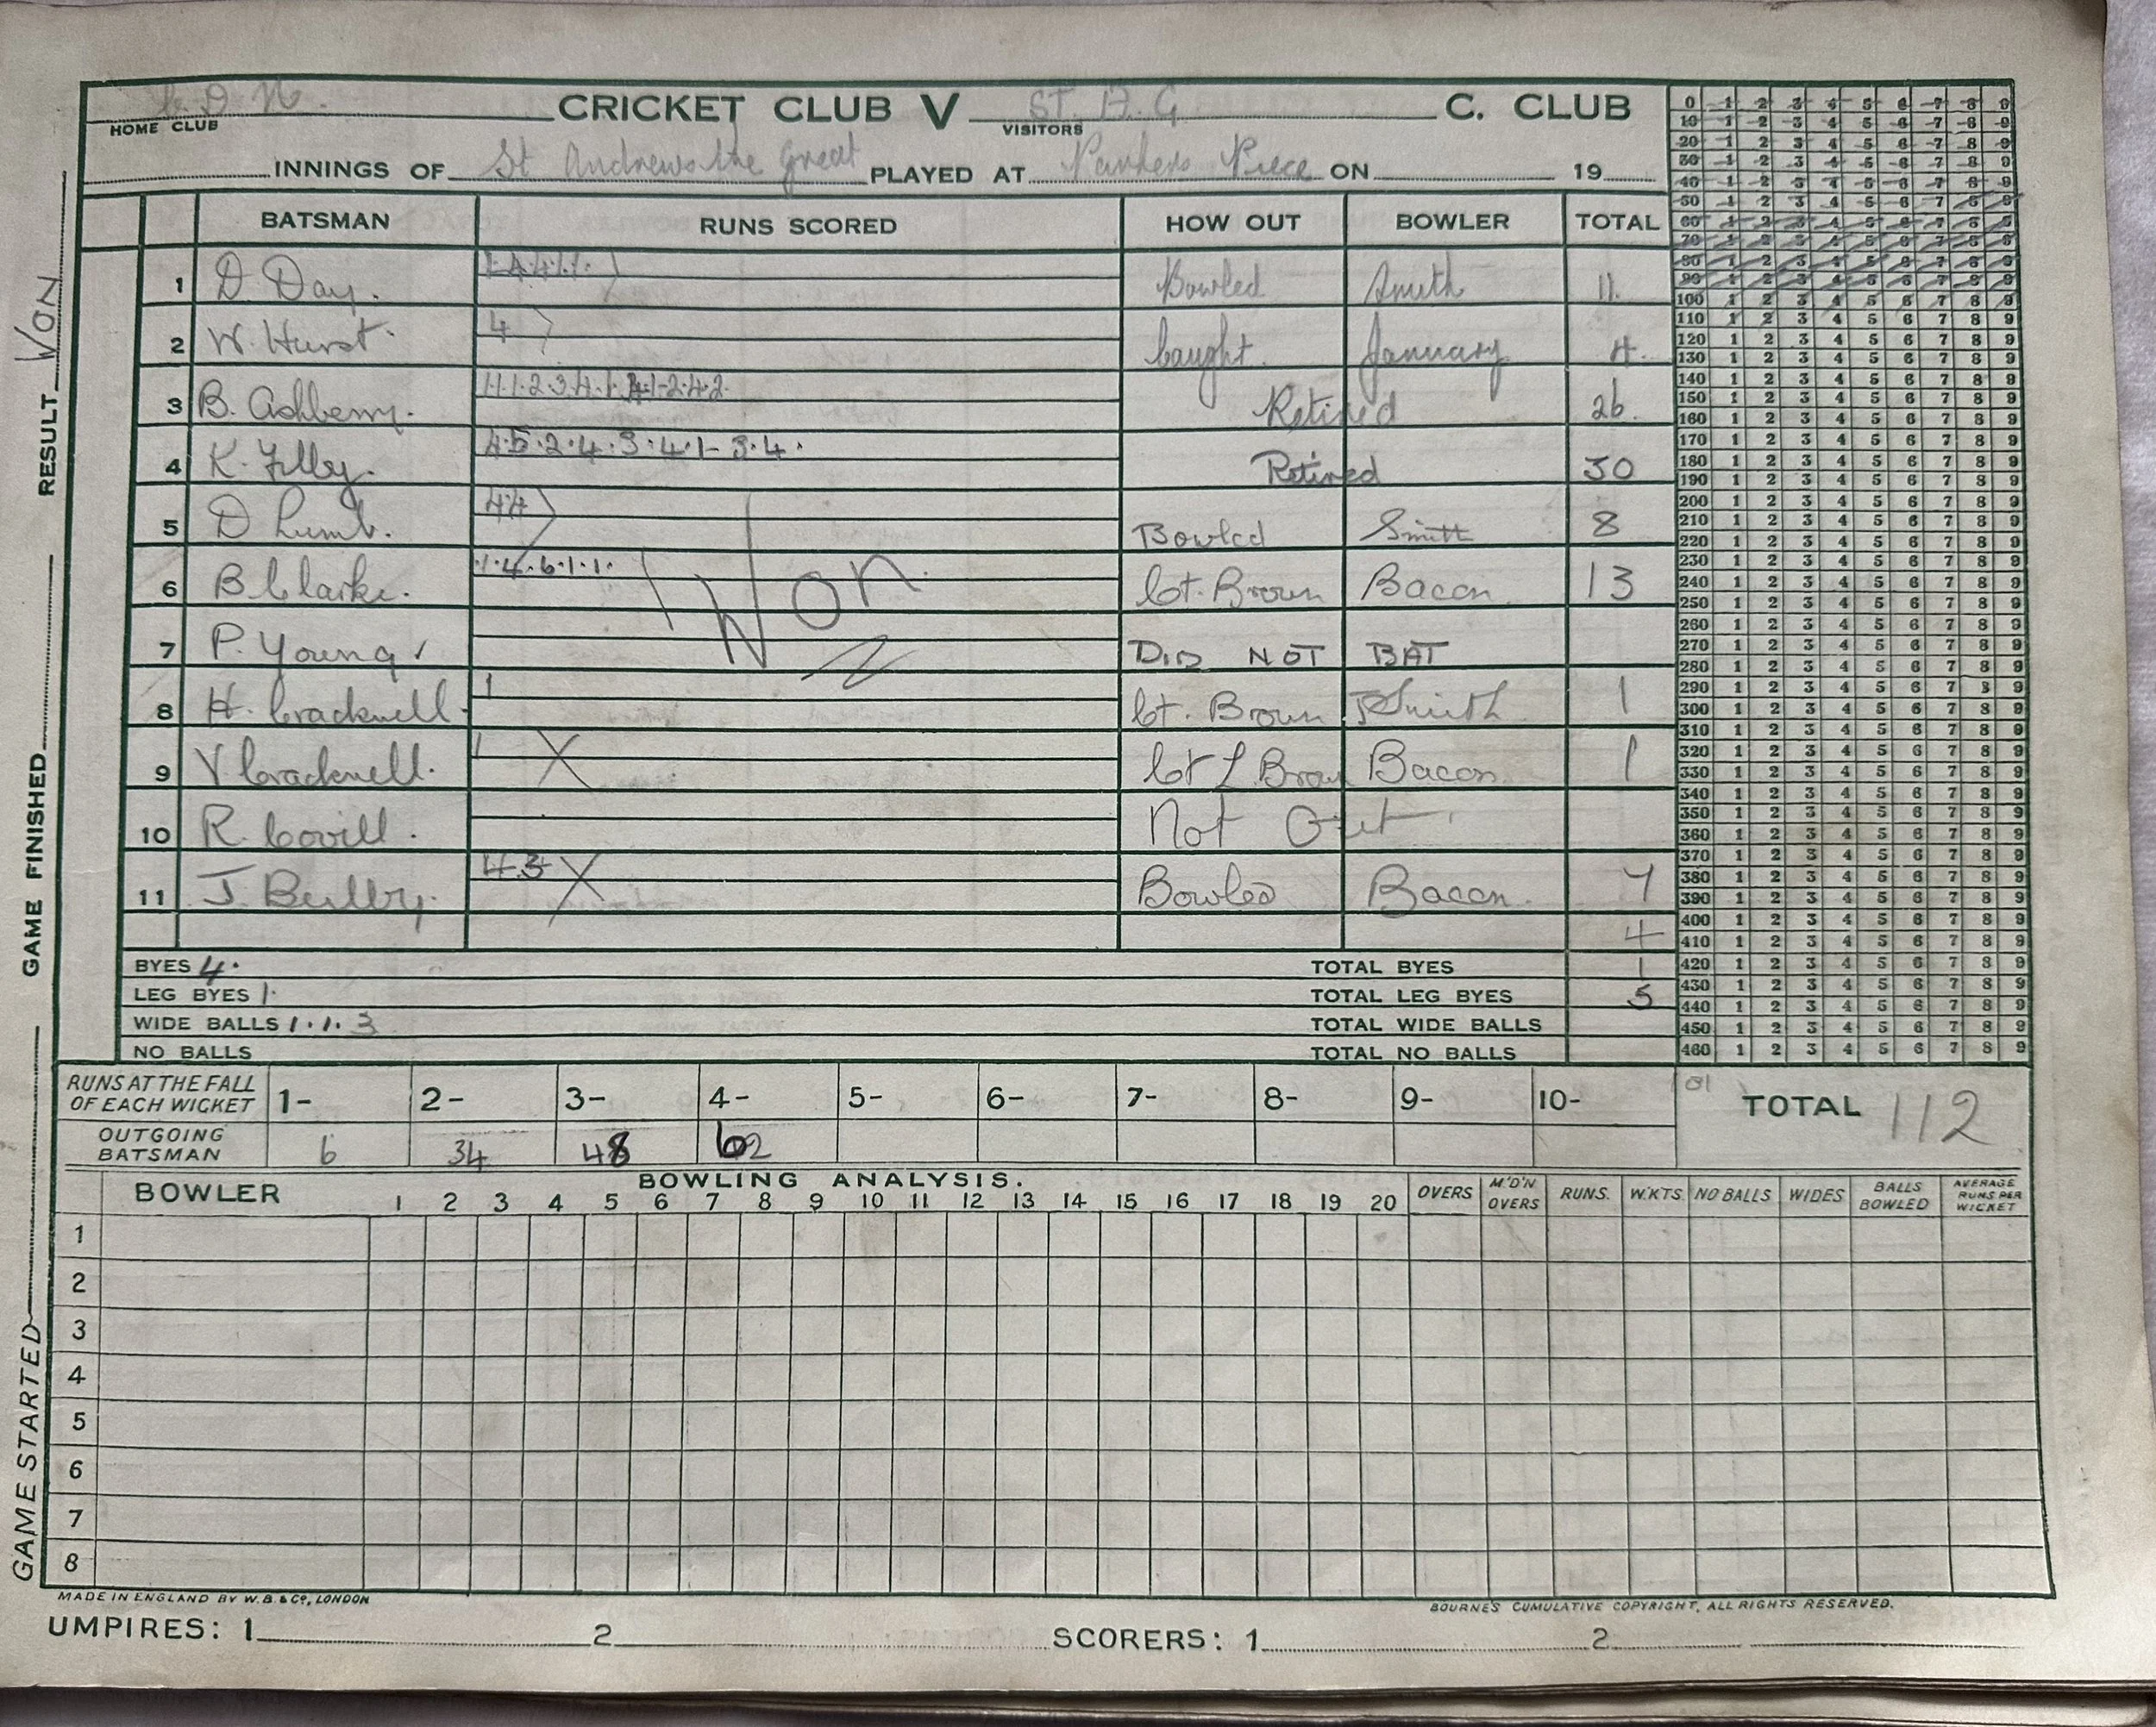 CRICKET CLUB V ST. A. G C. CLUB
HOME CLUB VISITORS
INNINGS OF St Andrews the Great PLAYED AT Parkers Piece ON 19
BATSMAN RUNS SCORED HOW OUT BOWLER TOTAL
1 D. Day. 1.4.4.1.1. Bowled Smith 11.
2 W. Hurst. 4 Caught January 4.
3 B. Ashberry. Retired 26.
4 K. Filby. 4.5.2.4.3.4.1-3.4. Retired 30
5 D Lumb. 44 Bowled Smith 8
6 B Clarke. 1.4.6.1.1. Ct. Brown Bacon. 13
7 P. Young. DID NOT BAT
8 H. Cracknell. 1 Ct. Brown Smith 1
9 V Cracknell. 1 X Ct L Brown Bacon 1
10 R. Covill. Not Out
11 J. Bully. 4.3 X Bowled Bacon. 7
Won
4
BYES 4. TOTAL BYES 1
LEG BYES 1. TOTAL LEG BYES 5
WIDE BALLS 1.1.3 TOTAL WIDE BALLS
NO BALLS TOTAL NO BALLS
0 1 2 3 4 5 6 7 8 9
10 1 2 3 4 5 6 7 8 9
20 1 2 3 4 5 6 7 8 9
30 1 2 3 4 5 6 7 8 9
40 1 2 3 4 5 6 7 8 9
50 1 2 3 4 5 6 7 8 9
60 1 2 3 4 5 6 7 8 9
70 1 2 3 4 5 6 7 8 9
80 1 2 3 4 5 6 7 8 9
90 1 2 3 4 5 6 7 8 9
100 1 2 3 4 5 6 7 8 9
110 1 2 3 4 5 6 7 8 9
120 1 2 3 4 5 6 7 8 9
130 1 2 3 4 5 6 7 8 9
140 1 2 3 4 5 6 7 8 9
150 1 2 3 4 5 6 7 8 9
160 1 2 3 4 5 6 7 8 9
170 1 2 3 4 5 6 7 8 9
180 1 2 3 4 5 6 7 8 9
190 1 2 3 4 5 6 7 8 9
200 1 2 3 4 5 6 7 8 9
210 1 2 3 4 5 6 7 8 9
220 1 2 3 4 5 6 7 8 9
230 1 2 3 4 5 6 7 8 9
240 1 2 3 4 5 6 7 8 9
250 1 2 3 4 5 6 7 8 9
260 1 2 3 4 5 6 7 8 9
270 1 2 3 4 5 6 7 8 9
280 1 2 3 4 5 6 7 8 9
290 1 2 3 4 5 6 7 8 9
300 1 2 3 4 5 6 7 8 9
310 1 2 3 4 5 6 7 8 9
320 1 2 3 4 5 6 7 8 9
330 1 2 3 4 5 6 7 8 9
340 1 2 3 4 5 6 7 8 9
350 1 2 3 4 5 6 7 8 9
360 1 2 3 4 5 6 7 8 9
370 1 2 3 4 5 6 7 8 9
380 1 2 3 4 5 6 7 8 9
390 1 2 3 4 5 6 7 8 9
400 1 2 3 4 5 6 7 8 9
410 1 2 3 4 5 6 7 8 9
420 1 2 3 4 5 6 7 8 9
430 1 2 3 4 5 6 7 8 9
440 1 2 3 4 5 6 7 8 9
450 1 2 3 4 5 6 7 8 9
460 1 2 3 4 5 6 7 8 9
RUNS AT THE FALL
OF EACH WICKET 1- 2- 3- 4- 5- 6- 7- 8- 9- 10- 101 TOTAL 112
OUTGOING
BATSMAN 6 34 48 62
BOWLING ANALYSIS.
BOWLER 1 2 3 4 5 6 7 8 9 10 11 12 13 14 15 16 17 18 19 20 OVERS M'D'N OVERS RUNS. W'KTS. NO BALLS WIDES BALLS BOWLED AVERAGE RUNS PER WICKET
1
2
3
4
5
6
7
8
MADE IN ENGLAND BY W.B. & Co, LONDON BOURNE'S CUMULATIVE COPYRIGHT, ALL RIGHTS RESERVED.
UMPIRES: 1 2 SCORERS: 1 2
GAME STARTED GAME FINISHED RESULT WON